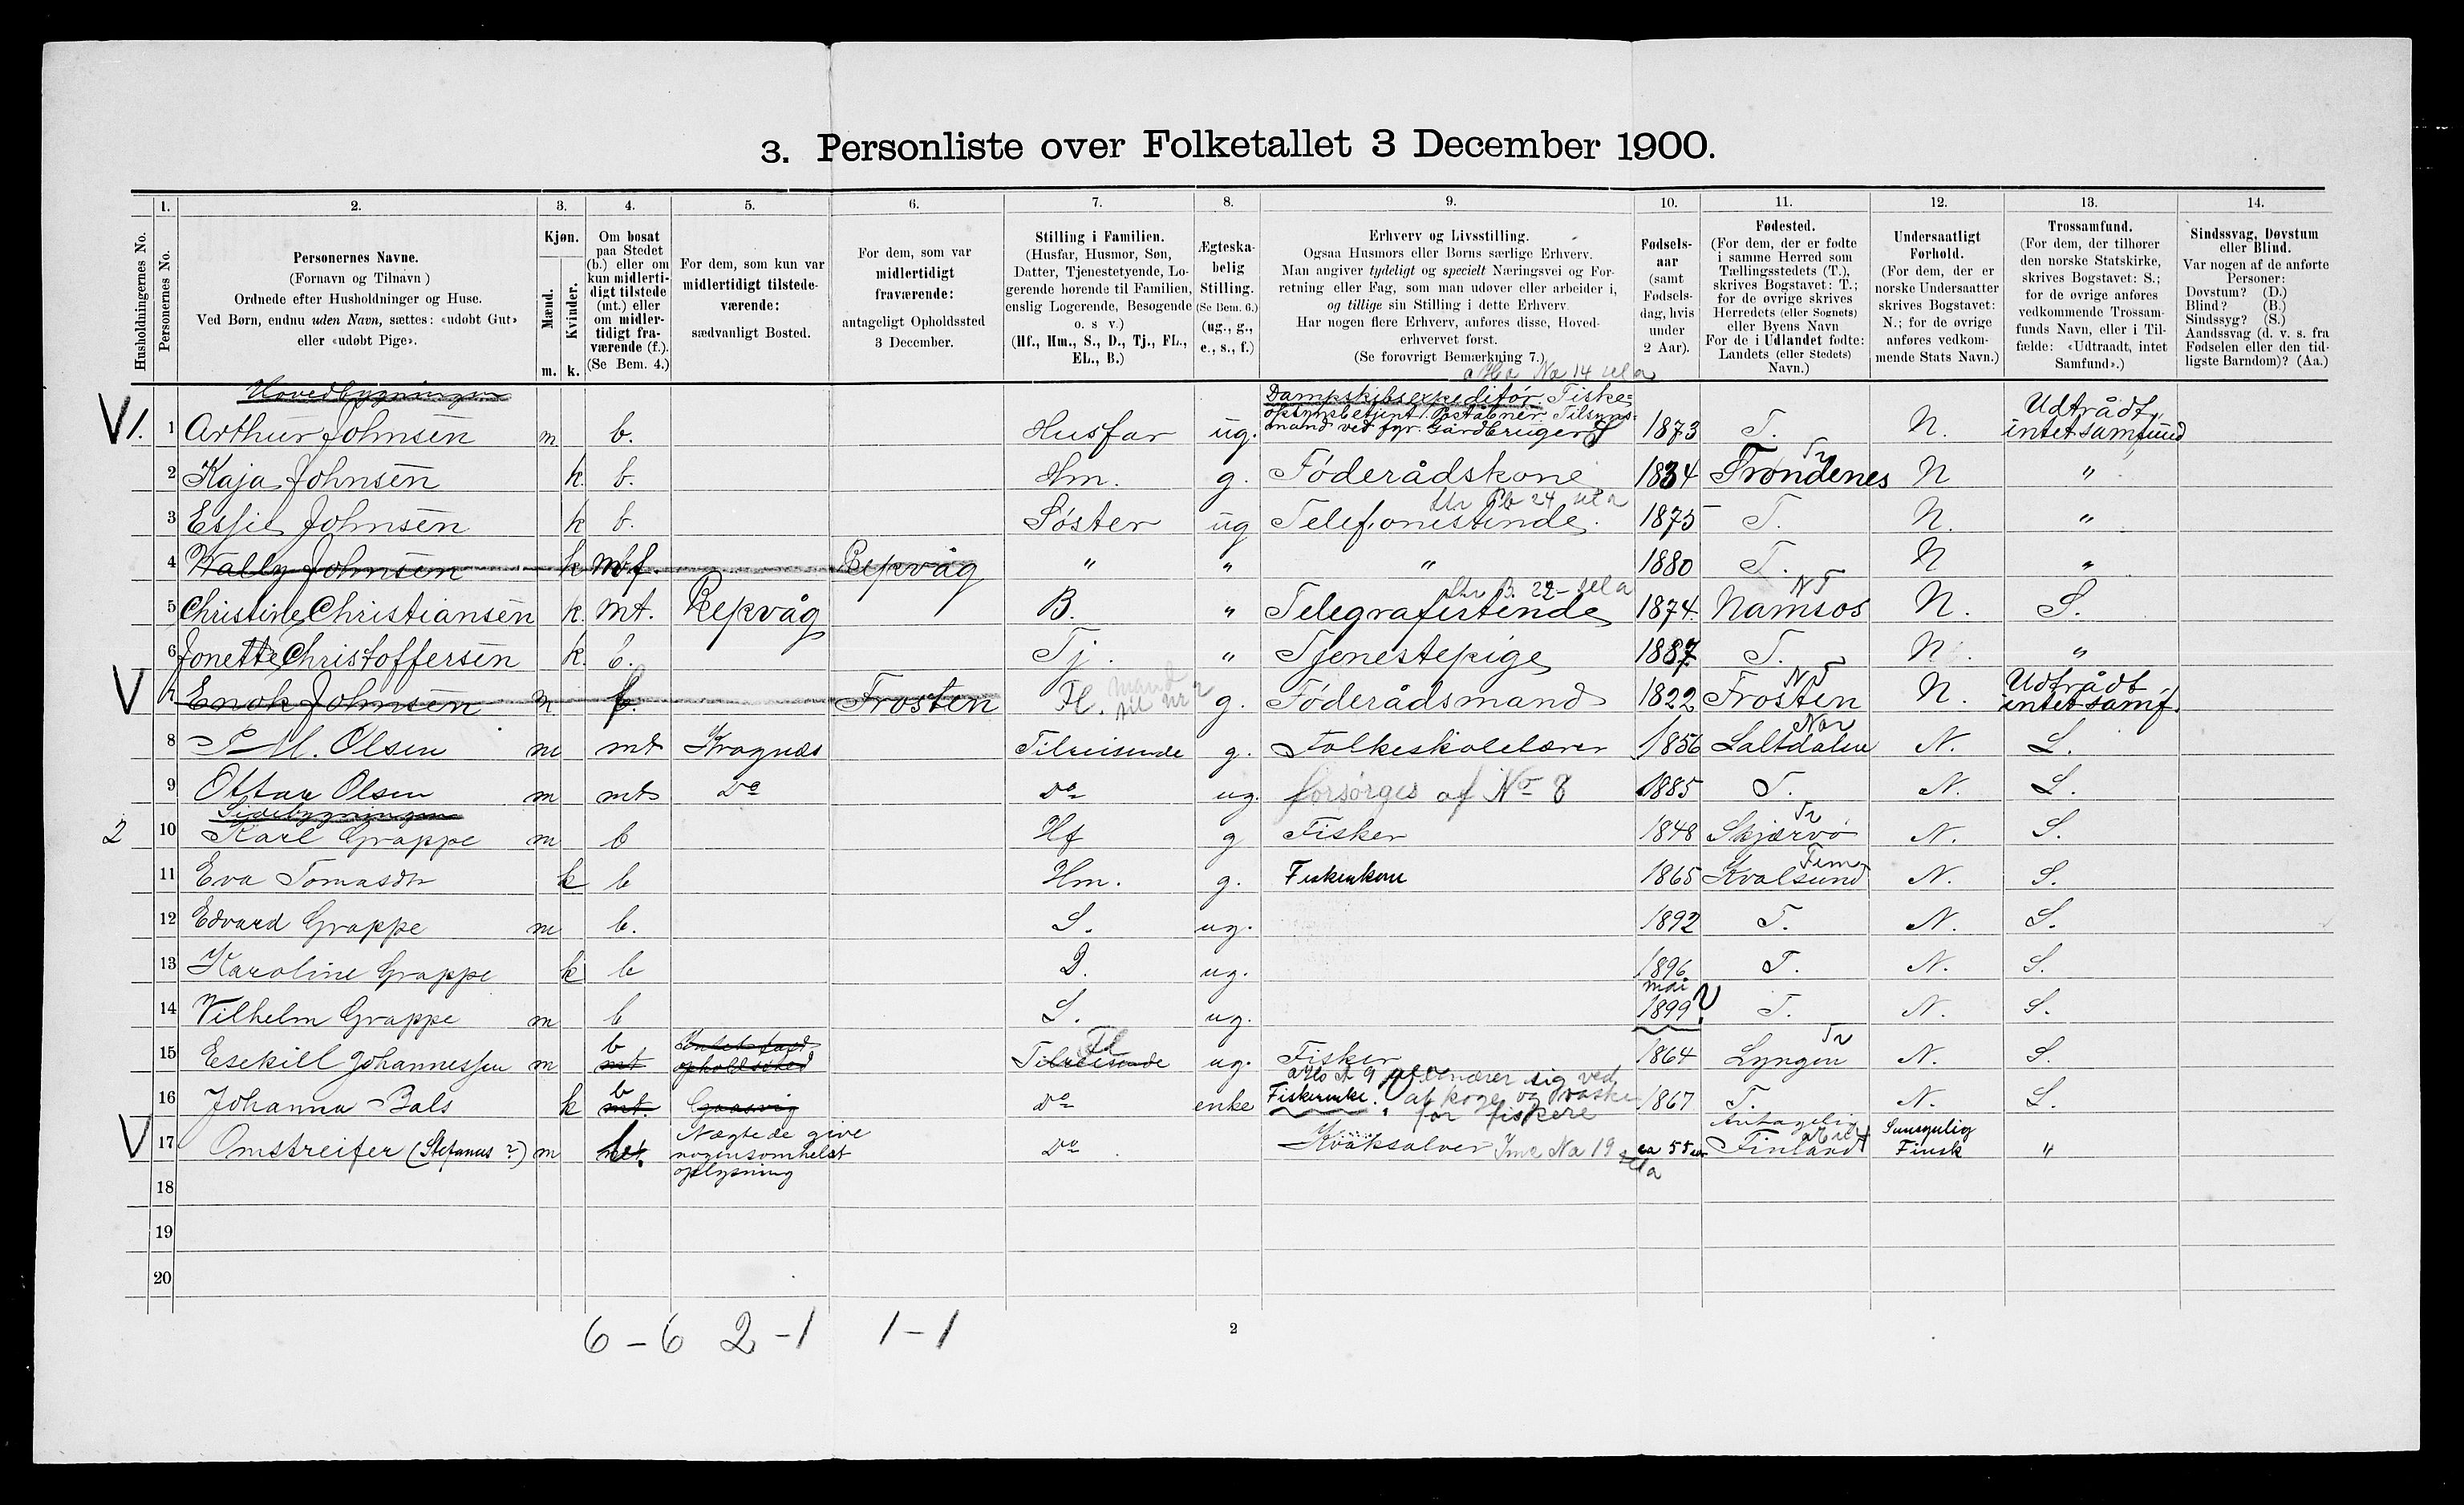 3. Personliste over Folketallet 3 December 1900.
1. 2. 3. 4. 5. 6. 7. 8. 9. 10. 11. 12. 13. 14.
Husholdningernes No.
Personernes No.
Personernes Navne.
(Fornavn og Tilnavn)
Ordnede efter Husholdninger og Huse.
Ved Børn, endnu uden Navn, sættes: «udøbt Gut»
eller «udøbt Pige».
Kjøn.
Mænd.
Kvinder.
m. k.
Om bosat
paa Stedet
(b.) eller om
kun midlerti-
digt tilstede
(mt.) eller
om midler-
tidigt fra-
værende (f.).
(Se Bem. 4.)
For dem, som kun var
midlertidigt tilstede-
værende:
sædvanligt Bosted.
For dem, som var
midlertidigt
fraværende:
antageligt Opholdssted
3 December.
Stilling i Familien.
(Husfar, Husmor, Søn,
Datter, Tjenestetyende, Lo-
gerende hørende til Familien,
enslig Logerende, Besøgende
o. s v.)
(Hf., Hm., S., D., Tj., FL.,
EL., B.)
Ægteska-
belig
Stilling.
(Se Bem. 6.)
(ug., g.,
e., s., f.)
Erhverv og Livsstilling.
Ogsaa Husmors eller Børns særlige Erhverv.
Man angiver tydeligt og specielt Næringsvei og For-
retning eller Fag, som man udøver eller arbeider i,
og tillige sin Stilling i dette Erhverv.
Har nogen flere Erhverv, anføres disse, Hoved-
erhvervet først.
(Se forøvrigt Bemærkning 7.)
Fødsels-
aar
(samt
Fødsels-
dag, hvis
under
2 Aar).
Fødested.
(For dem, der er fødte
i samme Herred som
Tællingsstedets (T.),
skrives Bogstavet: T.;
for de øvrige skrives
Herredets (eller Sognets)
eller Byens Navn
For de i Udlandet fødte:
Landets (eller Stedets)
Navn.)
Undersaatligt
Forhold.
(For dem, der er
norske Undersaatter
skrives Bogstavet:
N.; for de øvrige
anføres vedkom-
mende Stats Navn.)
Trossamfund.
(For dem, der tilhører
den norske Statskirke,
skrives Bogstavet: S.;
for de øvrige anføres
vedkommende Trossam-
funds Navn, eller i Til-
fælde: «Udtraadt, intet
Samfund».)
Sindssvag, Døvstum
eller Blind.
Var nogen af de anførte
Personer:
Døvstum? (D.)
Blind? (B.)
Sindssyg? (S.)
Aandssvag (d. v. s. fra
Fødselen eller den tid-
ligste Barndom)? (Aa.)
Hovedbygningen
Dampskibsexpeditør. Fiske-
opsynsbetjent. Postaabner. Tilsyns-
mand ved fyr. Gårdbruger S
V 1. 1 Arthur Johnsen m b. Husfar ug. 1873 T. N. Udtrådt, intet samfund
2 Kaja Johnsen k. b. Hm. g. Føderådskone 1834 Trondenes Tr N "
3 Essie Johnsen k b. Søster ug Telefonistinde. 1875 T. N. "
4 Wally Johnsen k f. Repvåg " " " 1880 T. N "
5 Christine Christiansen k. mt. Repvåg B. " Telegrafistinde 1874 Namsos NT N. S.
6 Jonette Christoffersen k. b. Tj. " Tjenestepige 1887 T. N. "
V 7 Enok Johnsen m. f. Frosten Fl. mand til nr 2 g. Føderådsmand 1822 Frosten NT N. Udtrådt intet samf.
8 P M. Olsen m mt Kragnæs Tilreisende g. Folkeskolelærer 1856 Saltdalen Nor N. S.
9 Ottar Olsen m mt Do do ug. forsørges af No 8 1885 T. N. S.
Sidebygningen
2 10 Karl Grappe m b Hf g Fisker 1848 Skjærvø Tr N. S.
11 Eva Tomasdtr k b Hm. g. Fiskerkone 1865 Kvalsund Finm N. S.
12 Edvard Grappe m b. S. ug. 1892 T. N. S.
13 Karoline Grappe k b D. ug. 1896 T. N. S.
14 Vilhelm Grappe m b S. ug. mai 1899 ? T. N. S.
15 Esekill Johannessen m b mt Intet fast opholdssted Tilreisende Fl ug. Fisker 1864 Lyngen Tr N. S.
16 Johanna Bals k b mt. Gaasvig do enke Fiskerenke. ernærer sig ved at koge og vaske for fiskere 1867 T. N. S.
V 17 Omstreifer (Stefanus ?) m Nægtede give nogensomhelst oplysning do Kvaksalver ca 55 aar Antagelig Finland Sansynlig Finsk "
18
19
20
6 - 6 2 - 1 1 - 1
2